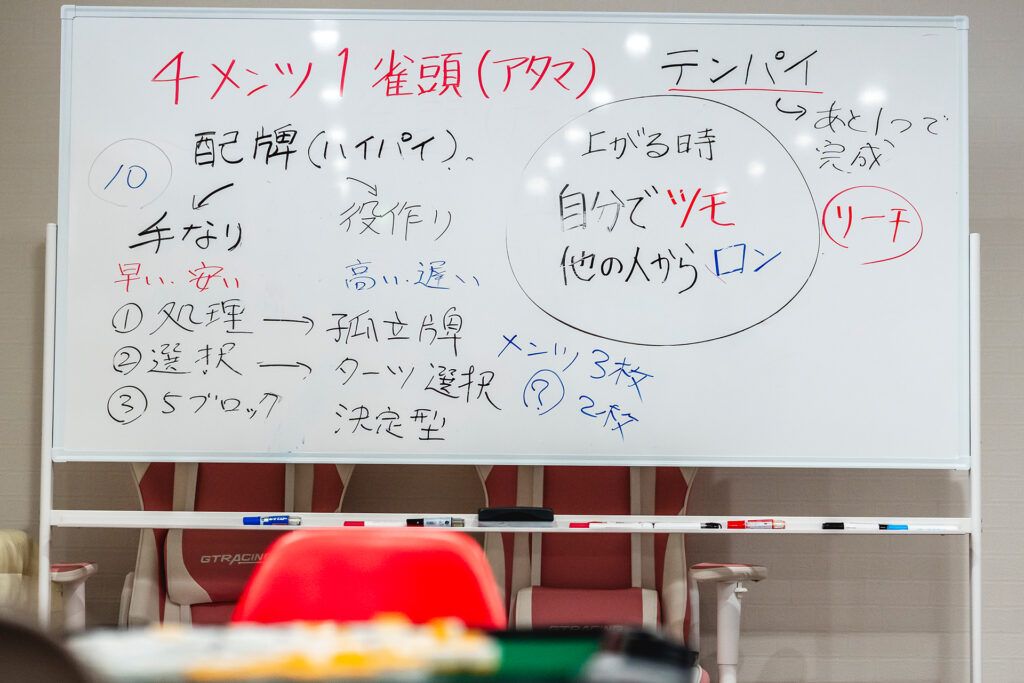 4メンツ1雀頭(アタマ)
テンパイ
あと1つで
完成
リーチ
上がる時
自分でツモ
他の人からロン
配牌(ハイパイ)。
10
手なり
役作り
早い・安い
高い・遅い
①処理→孤立牌
②選択→ターツ選択
③5ブロック 決定型
メンツ3枚
? 2枚
GTRACING